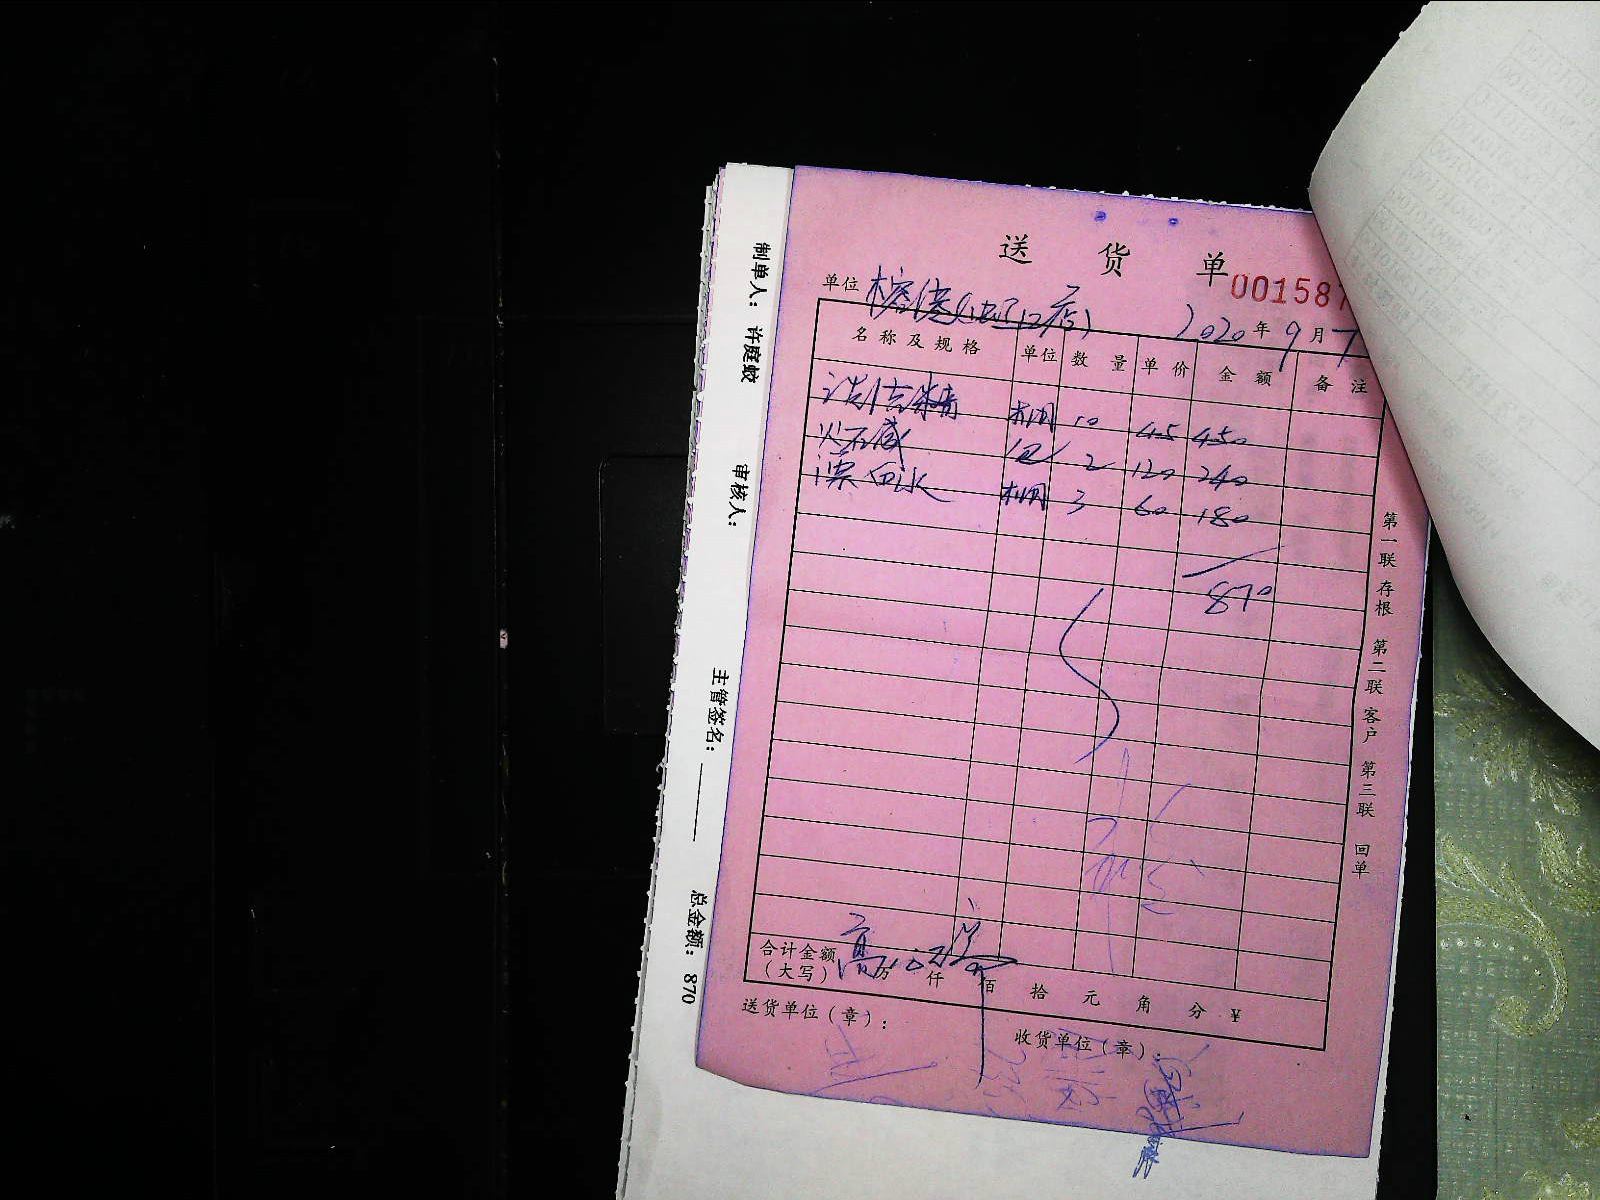 送 货 单
001587
单位 2020年9月7
名称及规格 单位 数量 单价 金额 备注
洗洁精 桶 10 45 450
火石威 包 2 120 240
漂白水 桶 3 60 180
870
合计金额（大写） 万 仟 佰 拾 元 角 分 ¥
送货单位（章）： 收货单位（章）：
第一联 存根 第二联 客户 第三联 回单
制单人： 许庭蛟 审核人： 主管签名： 总金额： 870